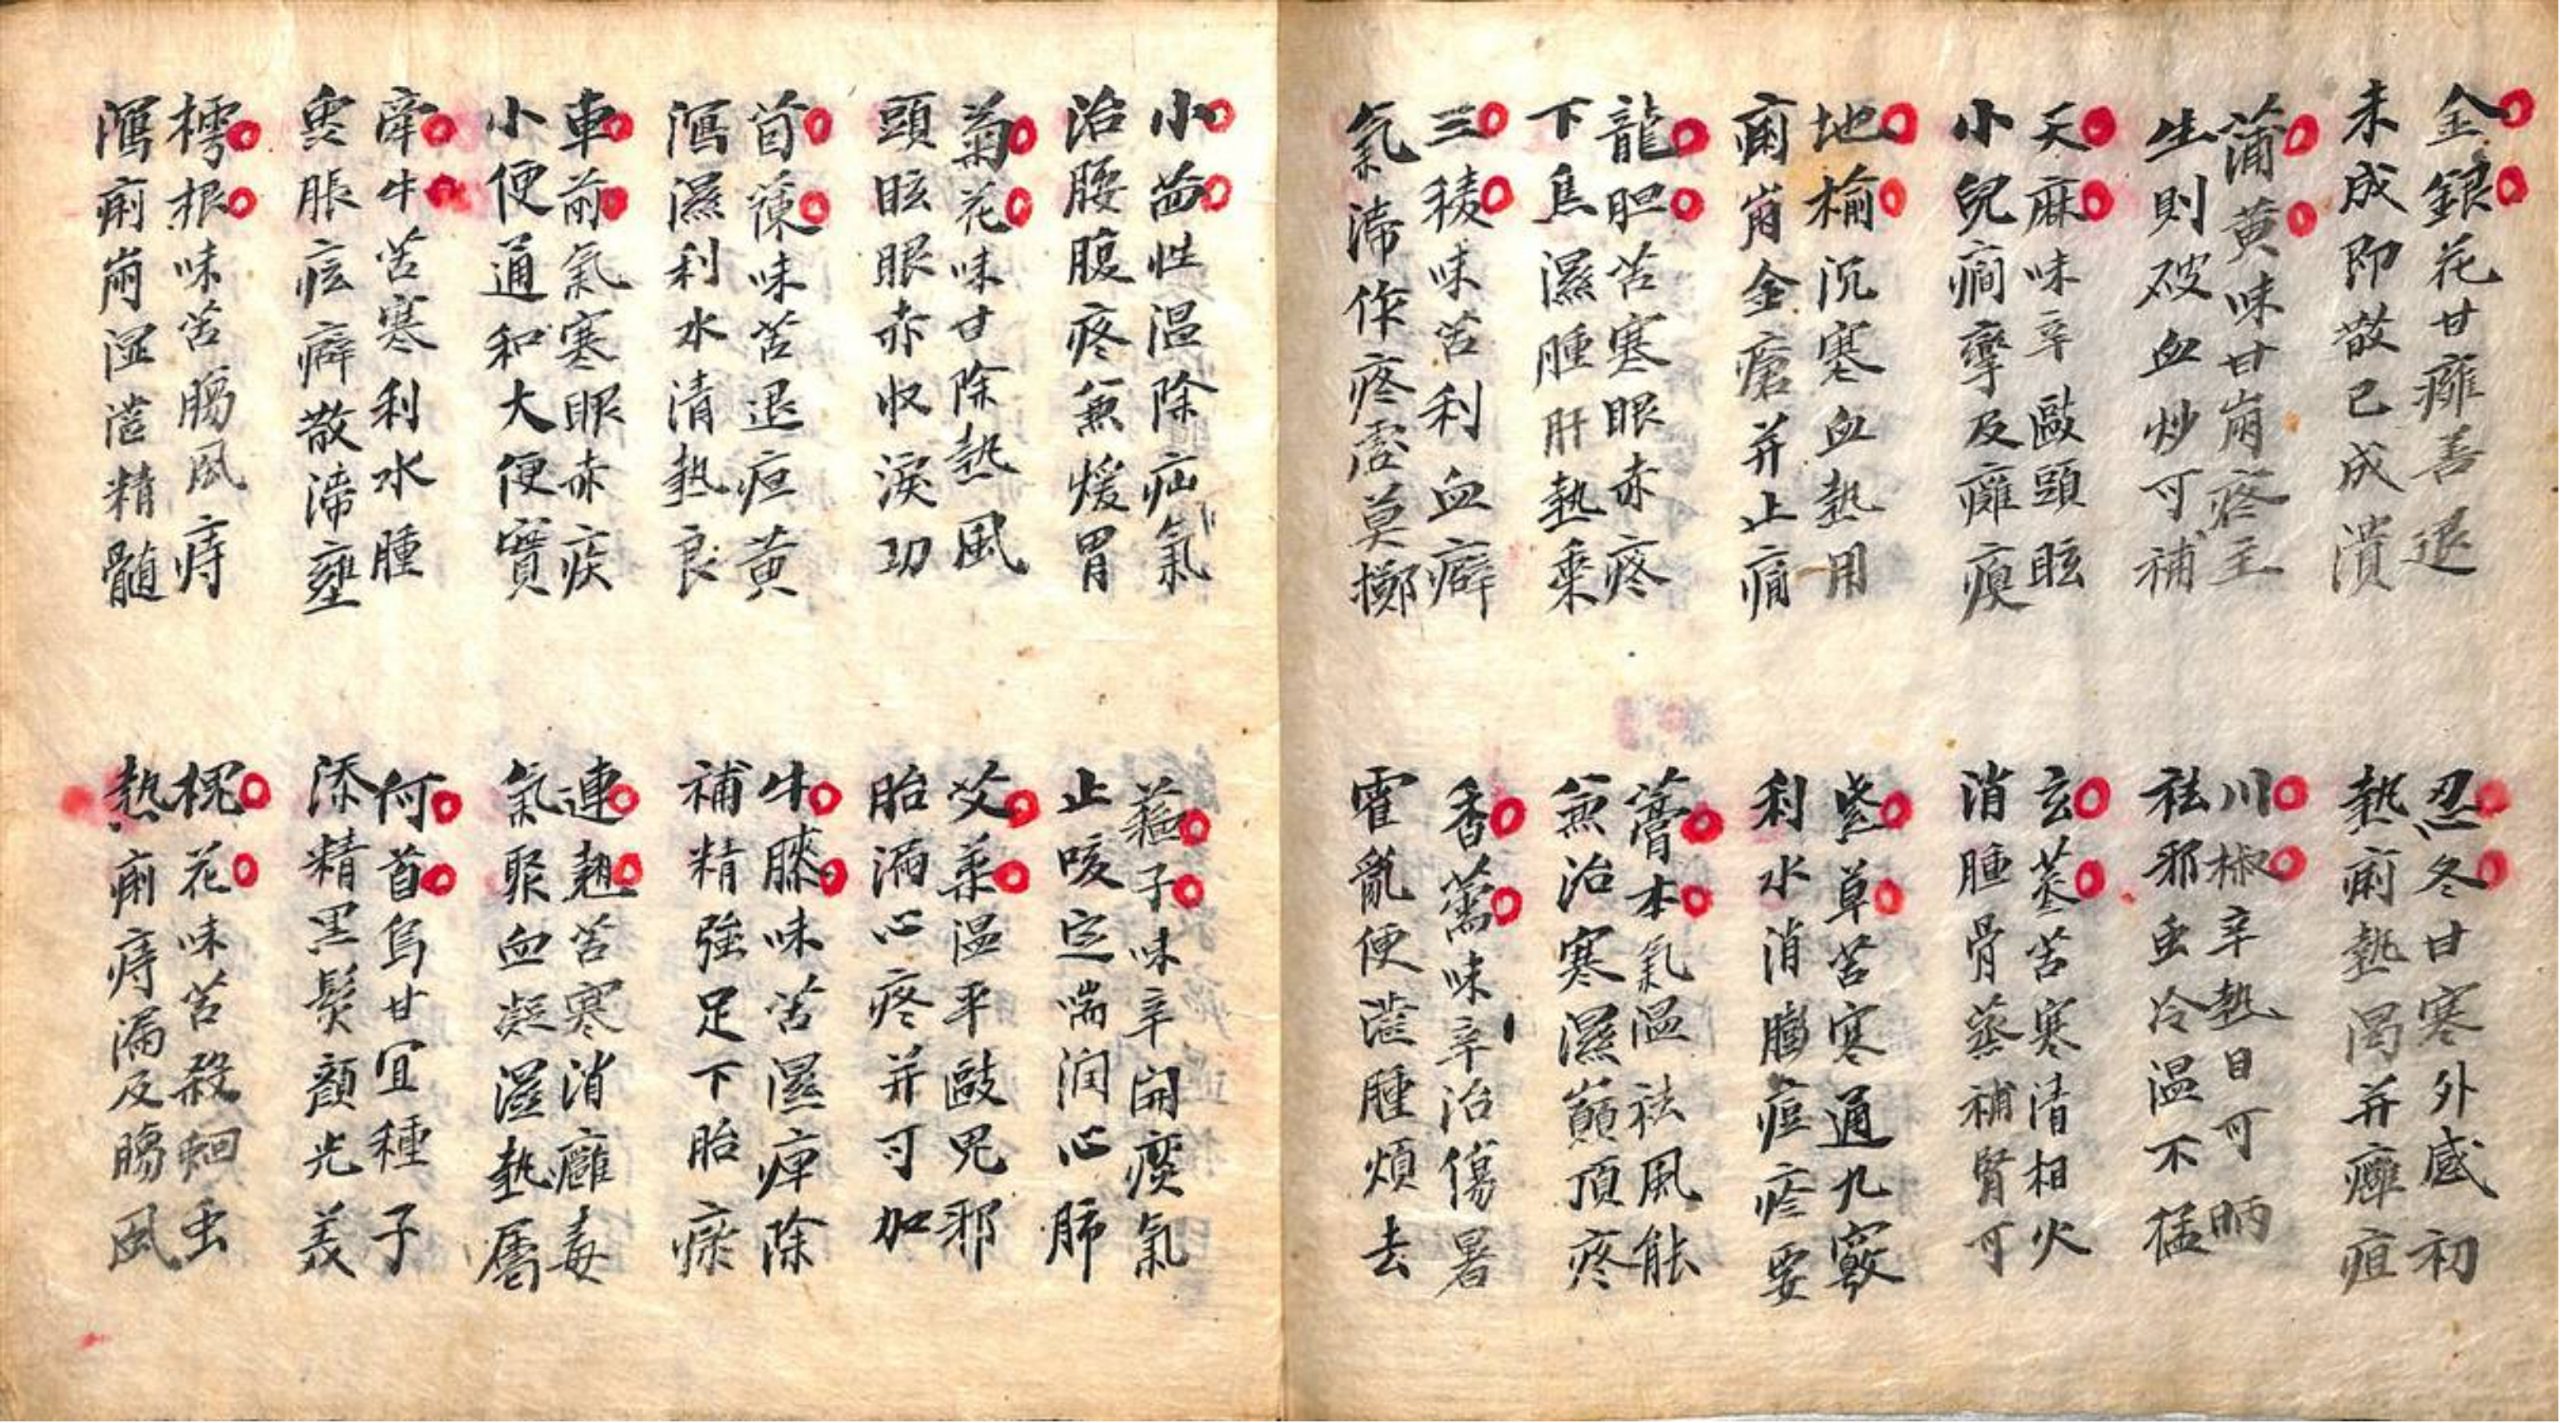 金銀花甘癰善退
未成即散已成潰
蒲黄味甘崩疼主
生則破血炒可補
天麻味辛敺頭眩
小兒癇攣及癱瘓
地榆沉寒血熱用
痢崩金瘡并止痛
龍胆苦寒眼赤疼
下焦濕腫肝熱乗
三稜味苦利血癖
氣滯作疼虚莫擲
忍冬甘寒外感初
熱痢熱渴并癰疽
川椒辛熱目可昞
祛邪虫冷温不猛
玄参苦寒清相火
消腫骨蒸補腎可
紫草苦寒通九竅
利水消膨痘疹要
藁本氣温祛風能
兼治寒濕巔頂疼
香薷味辛治傷暑
霍亂便澁腫煩去
小茴性温除疝氣
治腰腹疼兼煖胃
菊花味甘除熱風
頭眩眼赤收淚功
苜蓿味苦退疸黄
瀉濕利水清熱良
車前氣寒眼赤疾
小便通和大便實
牽牛苦寒利水腫
蠱脹痃癖散滯壅
樗根味苦腸風痔
瀉痢崩湿澁精髄
蘇子味辛開痰氣
止咳定喘润心肺
艾葉温平敺鬼邪
胎漏心疼并可加
牛膝味苦濕痹除
補精強足下胎瘀
連翹苦寒消癰毒
氣聚血凝濕熱屬
何首烏甘宜種子
添精黑髪顔光美
槐花味苦殺蛔虫
熱痢痔漏及腸風